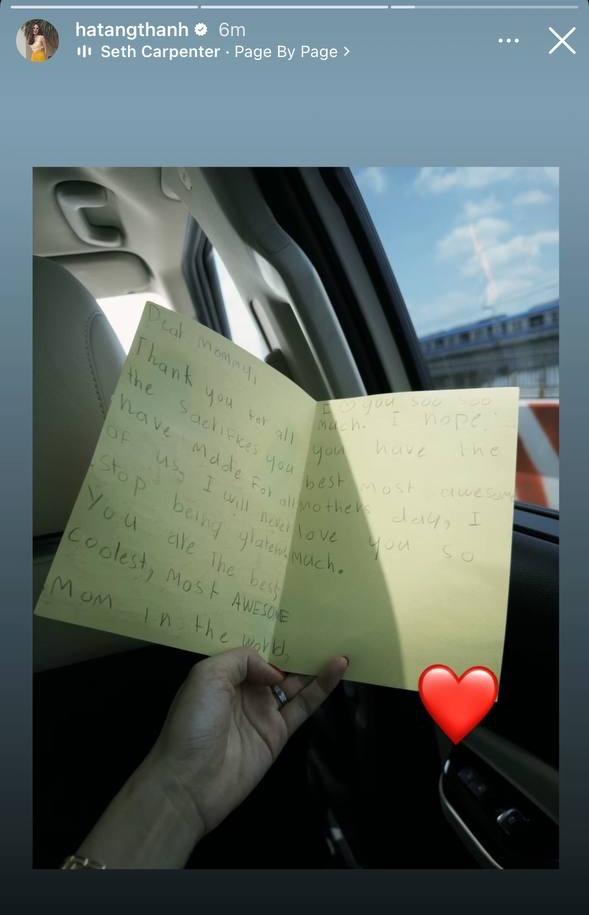 hatangthanh 6m
Seth Carpenter · Page By Page >
Dear Mommy,
Thank you for all
the sacrifices you
have made for all
of us, I will never
stop being glateful
You are the best
coolest, most AWESOME
Mom in the world,
I you soo soo
much. I hope
you have the
best most awesom
mothers day, I
love you so
much.